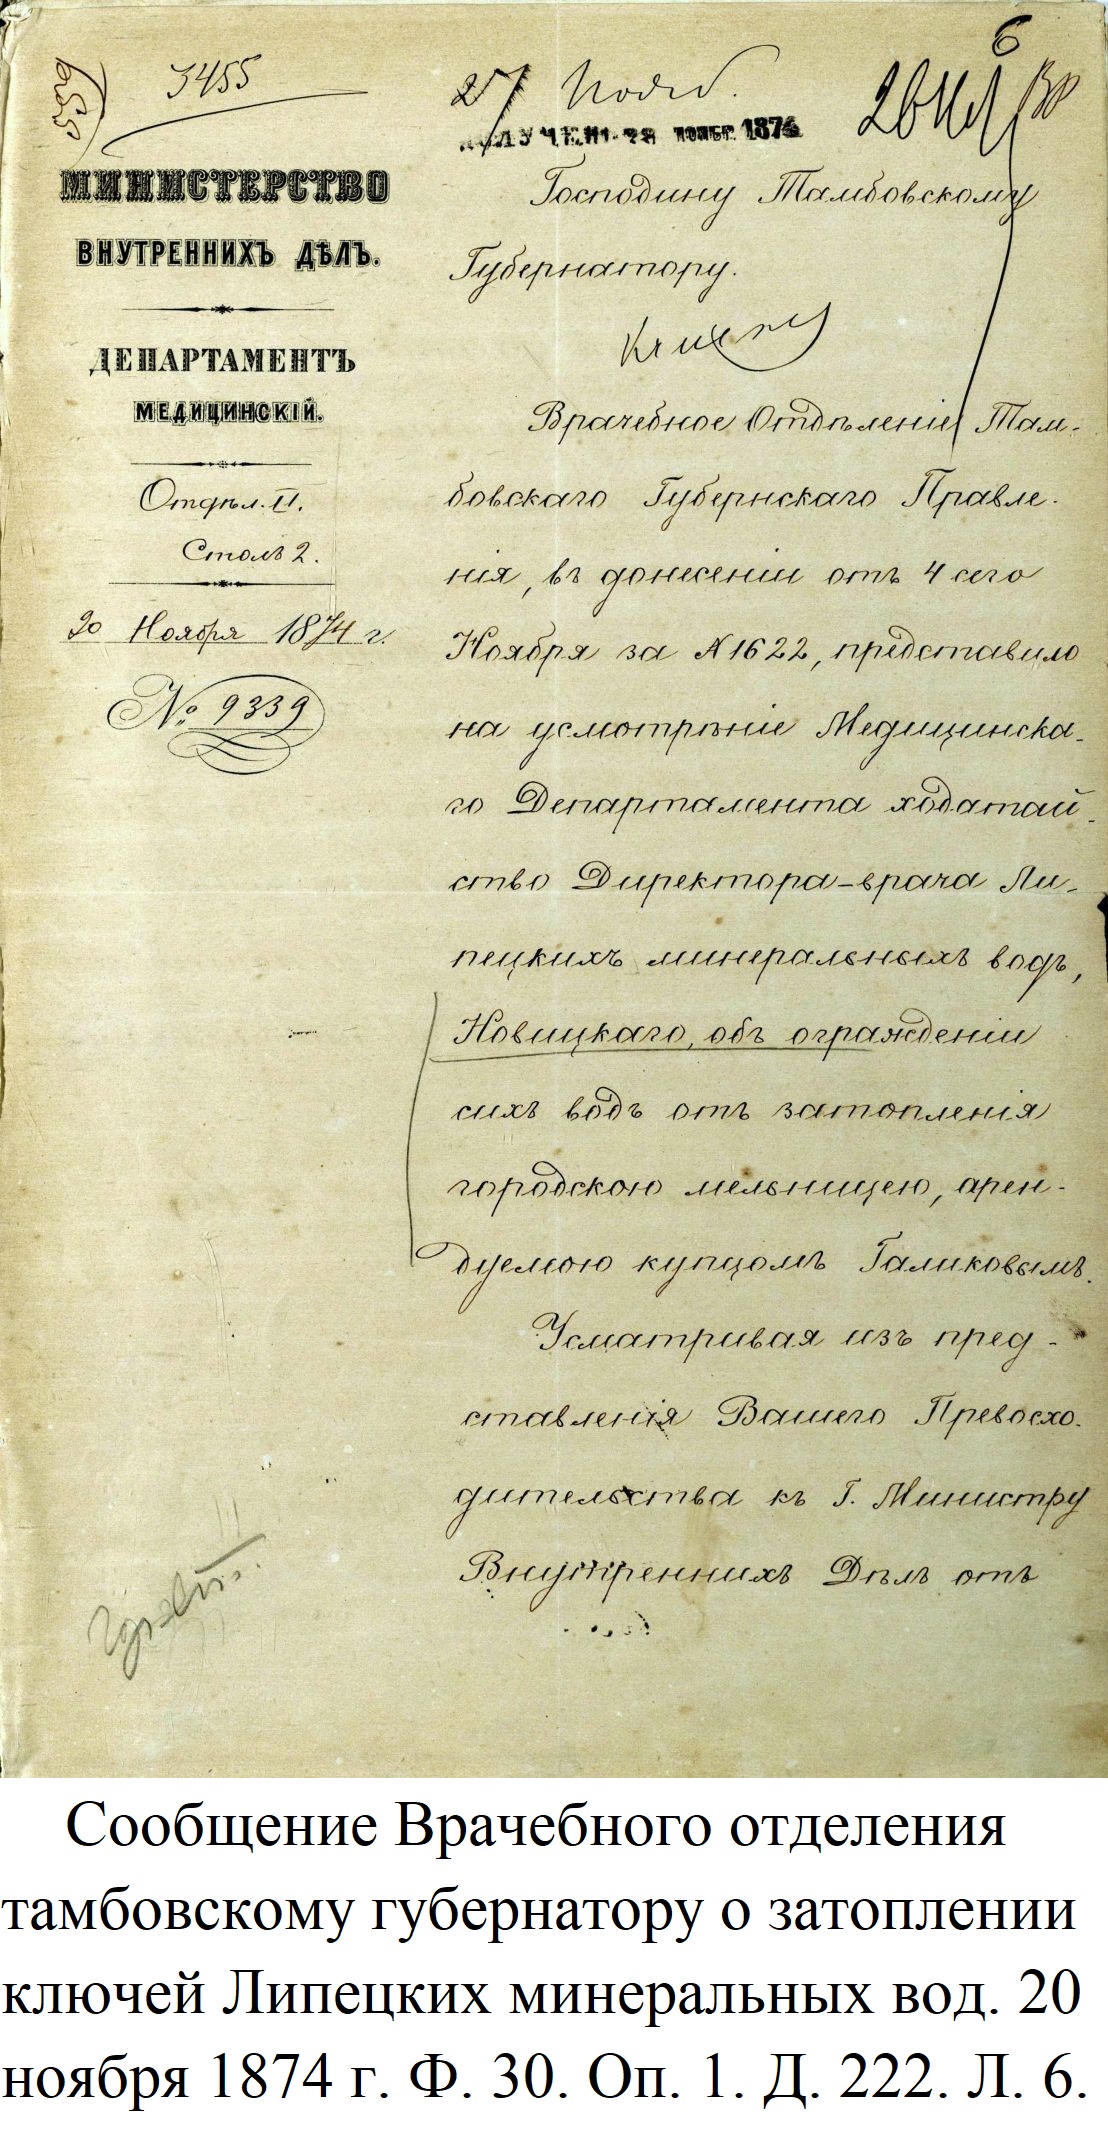 6
3455
МИНИСТЕРСТВО
ВНУТРЕННИХЪ ДѢЛЪ.
ДЕПАРТАМЕНТЪ
МЕДИЦИНСКІЙ.
Отдѣл. II.
Столъ 2.
20 Ноября 1874 г.
№ 9339
27 Нояб.
ПОЛУЧЕН 28 НОЯБР 1874
Господину Тамбовскому
Губернатору.
Врачебное Отдѣленіе Там-
бовскаго Губернскаго Правле-
нія, въ донесеніи отъ 4 сего
Ноября за № 1622, представило
на усмотрѣніе Медицинска-
го Департамента ходатай-
ство Директора-врача Ли-
пецкихъ минеральныхъ водъ,
Новицкаго, объ огражденіи
сихъ водъ отъ затопленія
городскою мельницею, арен-
дуемою купцомъ Галиковымъ.
Усматривая изъ пред-
ставленія Вашего Превосхо-
дительства къ Г. Министру
Внутреннихъ Дѣлъ отъ
Сообщение Врачебного отделения
тамбовскому губернатору о затоплении
ключей Липецких минеральных вод. 20
ноября 1874 г. Ф. 30. Оп. 1. Д. 222. Л. 6.